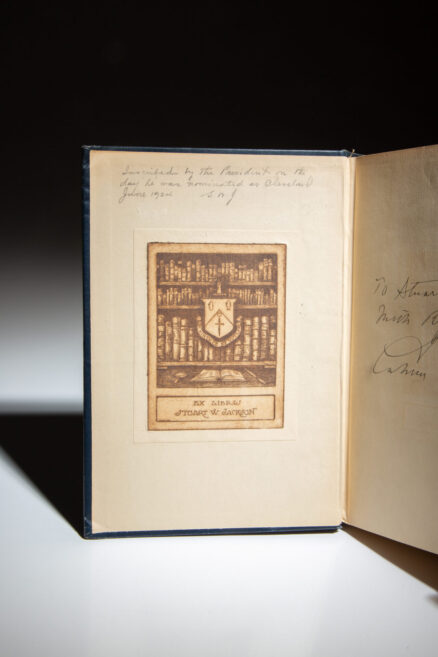 Inscribed by the President on the
day he was nominated at Cleveland
June 1924 S W J
EX LIBRIS
STUART W. JACKSON
To Stuar
With R